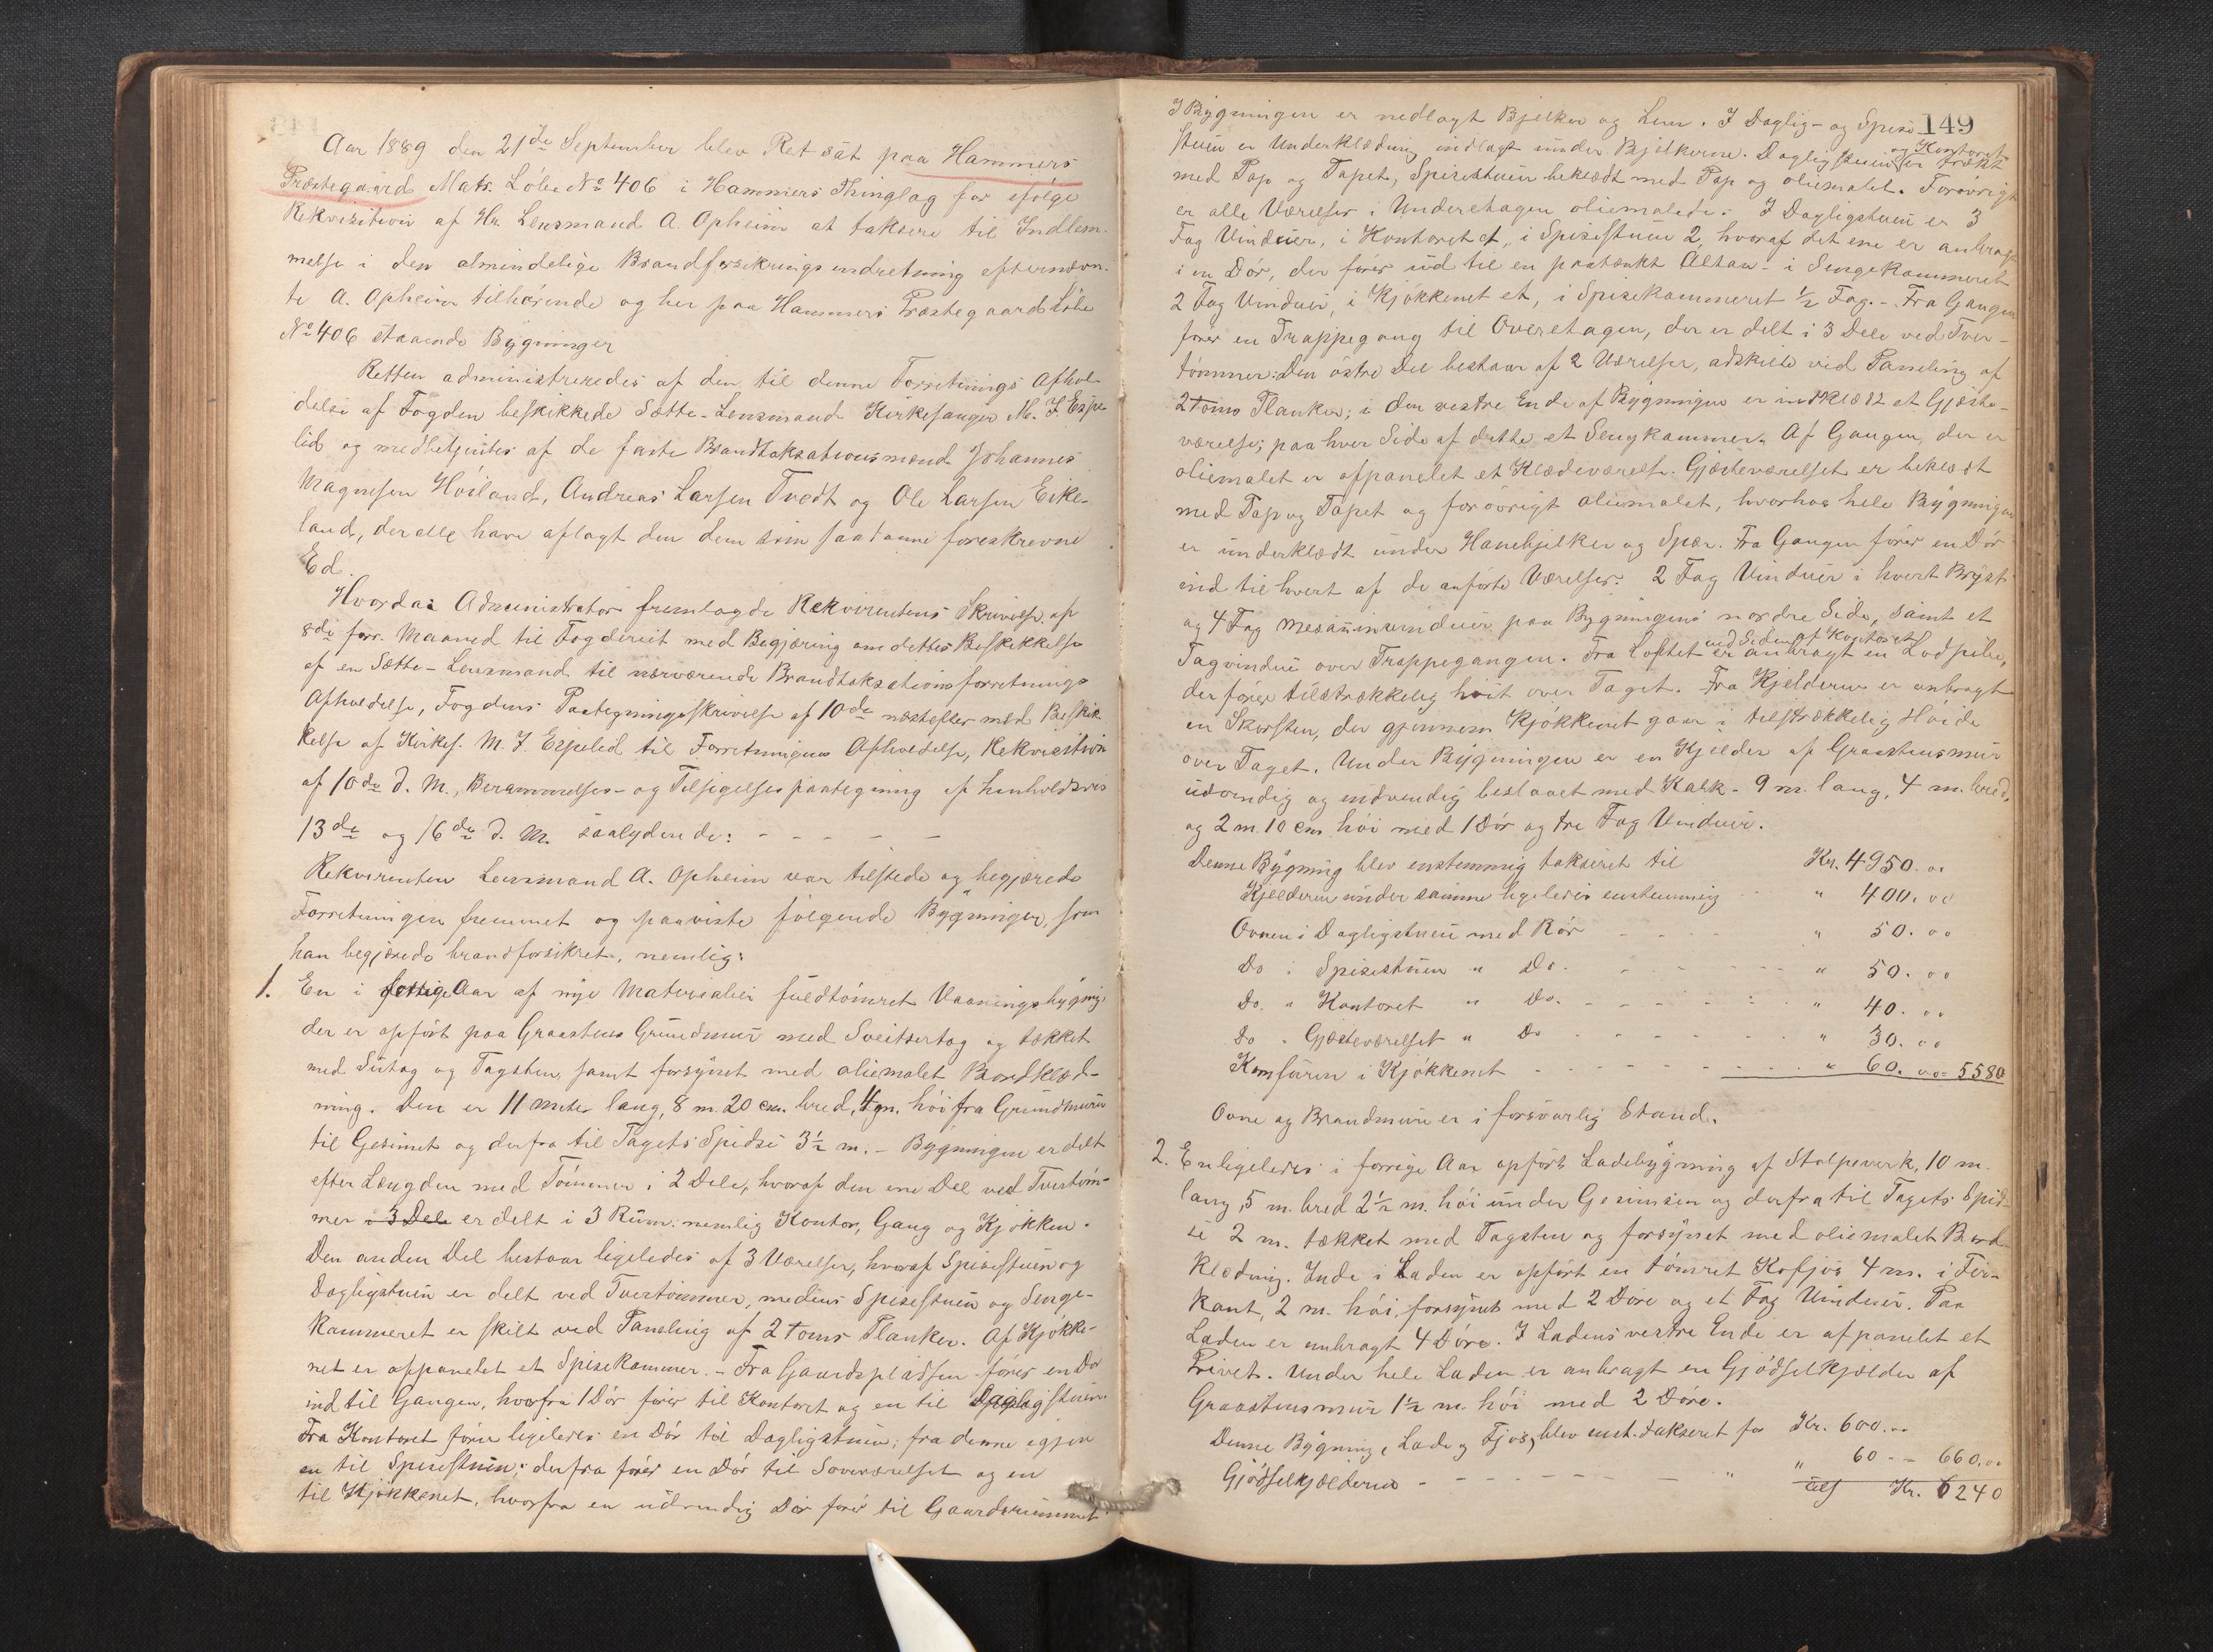 Aar 1889 den 21de September blev Ret sat paa Hammers
Præstegaard Matr. Løbe No 406 i Hammers Thinglag for ifølge
Rekvisition af Hr. Lensmand A. Opheim at taksere til Indlem-
melse i den almindelige Brandforsikringsindretning efternævn-
te A. Opheim tilhørende og her paa Hammers Præstegaard Løbe
No 406 staaende Bygninger
Retten administreredes af den til denne Forretnings Afhol-
delse af Fogden beskikkede Sætte-Lensmand Kirkesanger M. J. Espe-
lid og medbetjentes af de faste Brandtaksationsmænd Johannes
Magnesen Höiland, Andreas Larsen Tvedt og Ole Larsen Eike-
land, der alle have aflagt den dem som saadanne foreskrevne
Ed.
Hvorda: Administrator fremlagde Rekvirentens Skrivelse af
8de forr. Maaned til Fogderiet med Begjæring om dettes Beskikkelse
af en Sætte-Lensmand til nærværende Brandtaksationsforretnings
Afholdelse, Fogdens Paategningsskrivelse af 10de næstefter med Beskik-
kelse af Kirkes. M. J. Espelid til Forretningens Afholdelse, Rekvisition
af 10de d. M., Berammelses- og Tilsigelsespaategning af henholdsvis
13de og 16de d. M. saalydende: - - - - -
Rekvirenten Lensmand A. Opheim var tilstede og begjærede
Forretningen fremmet og paaviste følgende Bygninger, som
han begjærede brandforsikret, nemlig:
1. En i forrige Aar af nye Materialier fuldtömret Vaaningsbygning,
der er opført paa Graastens Grundmur med Sveitsertag og tækket
med Sutag og Tagsten samt forsynet med oliemalet Bordklæd-
ning. Den er 11 meter lang, 8 m. 20 cm. bred, 4 m. höi fra Grundmuren
til Gesimset og derfra til Tagets Spidse 3½ m. - Bygningen er delt
efter Længden med Tömmer i 2 Dele, hvoraf den ene Del ved Tvertöm-
mer i 3 Dele er delt i 3 Rum: nemlig Kontor, Gang og Kjøkken.
Den anden Del bestaar ligeledes af 3 Værelser, hvoraf Spisestuen og
Dagligstuen er delt ved Tvertömmer, medens Spisestuen og Senge-
kammeret er skilt ved Paneling af 2 toms Planker. Af Kjøkke-
net er afpanelet et Spisekammer. - Fra Gaardspladsen fører en Dør
ind til Gangen, hvorfra 1 Dör fører til Kontoret og en til Dagligstuen
Fra Kontoret fører ligeledes en Dör til Dagligstuen; fra denne igjen
en til Spisestuen; derfra fører en Dör til Soveværelset og en
til Kjøkkenet, hvorfra en udvendig Dör fører til Gaardsrummet.
149
I Bygningen er nedlagt Bjelker og Lem. I Daglig- og Spise-
stuen er Underklædning indlagt under Bjelkerne. Dagligstuen og Kontoret er trækt
med Pap og Tapet, Spisestuen beklædt med Pap og oliemalet. Forøvrigt
er alle Værelser i Underetagen oliemalede. I Dagligstuen er 3
Fag Vinduer, i Kontoret et, i Spisestuen 2, hvoraf det ene er anbragt
i en Dör, der fører ud til en paatænkt Altan - i Sengekammeret
2 Fag Vinduer, i Kjøkkenet et, i Spisekammeret ½ Fag. - Fra Gangen
fører en Trappegang til Overetagen, der er delt i 3 Dele ved Tver-
tömmer: Den östre Del bestaar af 2 Værelser, adskilte ved Paneling af
2 toms Planker; i den vestre Ende af Bygningen er indklædt et Gjæste-
værelse; paa hver Side af dette et Sengkammer. Af Gangen, der er
oliemalet er afpanelet et Klædeværelse. Gjæsteværelset er beklædt
med Pap og Tapet og forøvrigt oliemalet, hvorhos hele Bygningen
er underklædt under Hanebjelker og Spær. Fra Gangen fører en Dör
ind til hvert af de anførte Værelser. 2 Fag Vinduer i hvert Bryst
og 4 Fag Mesaninvinduer paa Bygningens nordre Side, samt et
Tagvindue over Trappegangen. Fra Loftet ved Siden af Kontoret er anbragt en Lodpibe,
der fører tilstrækkelig höit over Taget. Fra Kjelderen er anbragt
en Skorsten, der gjennem Kjökkenet gaar i tilstrækkelig Höide
over Taget. Under Bygningen er en Kjelder af Graastensmur
udvendig og indvendig beslaaet med Kalk - 9 m. lang, 4 m. bred,
og 2 m. 10 cm. höi med 1 Dör og tre Fag Vinduer.
Denne Bygning blev enstemmig takseret til Kr. 4950.00
Kjelderen under samme ligeledes enstemmig " 400.00
Ovnen i Dagligstuen med Rör - - - " 50.00
Do i Spisestuen " Do. - - - - " 50.00
Do. " Kontoret " Do. - - - - " 40.00
Do " Gjæsteværelset " Do - - - - " 30.00
Komfuren i Kjökkenet - - - - - " 60.00 = 5580
Ovne og Brandmure er i forsvarlig Stand.
2. En ligeledes i forrige Aar opført Ladebygning af Stolpeverk, 10 m.
lang, 5 m. bred 2½ m. höi under Gesimsen og derfra til Tagets Spid-
se 2 m. tækket med Tagsten og forsynet med oliemalet Bord-
klædning. Inde i Laden er opført en tömret Kofjös 4 m. i Fir-
kant, 2 m. höi, forsynet med 2 Döre og et Fag Vinduer. Paa
Laden er anbragt 4 Döre. I Ladens vestre Ende er afpanelet et
Privet. Under hele Laden er anbragt en Gjödselkjælder af
Graastensmur 1½ m. höi med 2 Döre.
Denne Bygning, Lade og Fjös, blev enst. takseret for Kr. 600.00
Gjödselkjælderen - - - - - - " " 60 - = 660.00
tils Kr. 6240